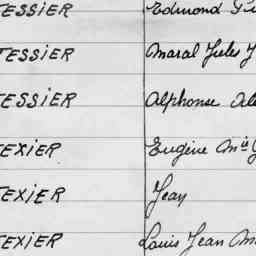 TESSIER Edmond
TESSIER Maral Jules
TESSIER Alphonse
TEXIER Eugène Mie
TEXIER Jean
TEXIER Louis Jean